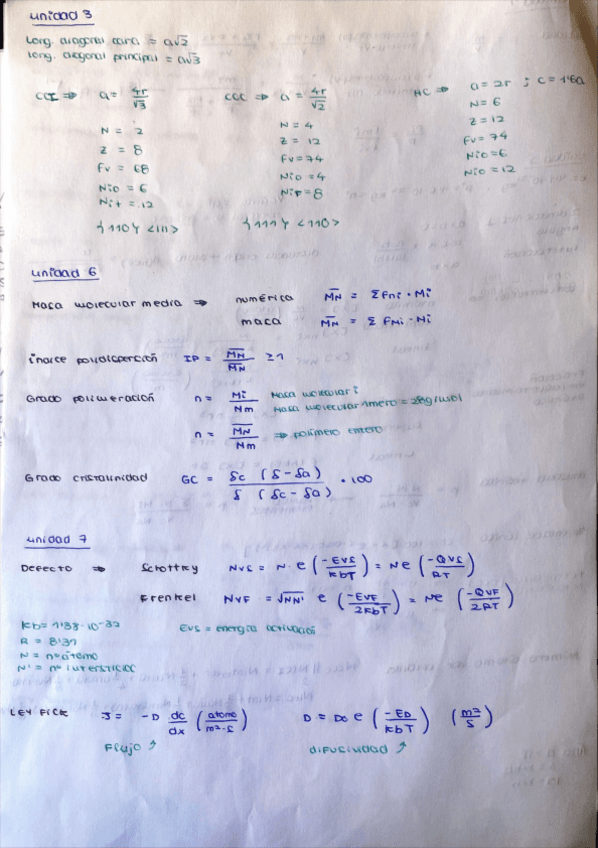 unidad 3
Long. diagonal cara = a√2
Long. diagonal principal = a√3
CCI ⇒ a = 4r/√3
N = 2
Z = 8
Fv = 68
Nio = 6
Nit = 12
{110} <111>
CCC ⇒ a = 4r/√2
N = 4
Z = 12
Fv = 74
Nio = 4
Nit = 8
{111} <110>
HC ⇒ a = 2r ; c = 1'6a
N = 6
Z = 12
Fv = 74
Nio = 6
Nio = 12
unidad 6
Masa molecular media ⇒ numérica M̅N̅ = Σ fni · Mi
masa M̅N̅ = Σ fMi · Mi
índice polidispersión IP = M̅N̅/M̅N̅ ≥ 1
Grado polimeración n = Mi/Nm Masa molecular i
Masa molecular 1mero = 28g/mol
n = M̅N̅/Nm ⇒ polímero entero
Grado cristalinidad GC = δc (δ - δa)/δ (δc - δa) · 100
unidad 7
Defecto ⇒ Schottky NVS = N · e (-EVS/KbT) = Ne (-QVS/RT)
Frenkel NVF = √NN' e (-EVF/2KbT) = Ne (-QVF/2RT)
Kb = 1'38·10-32
R = 8'31
N = nº átomo
N' = nº intersticios
EVS = energía activación
LEY FICK J = -D dc/dx (átomo/m²·s) D = Do e (-ED/KbT) (m²/s)
Flujo ↑ difusividad ↑